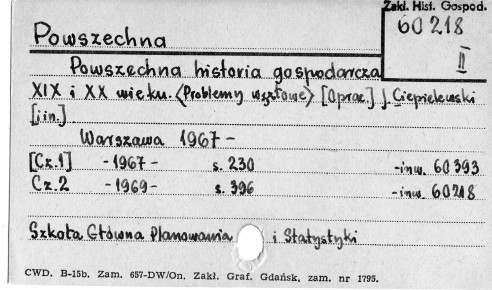 Zakł. Hist. Gospod.
60218
II
Powszechna
Powszechna historia gospodarcza
XIX i XX wieku. (Problemy węzłowe) [Oprac.] J. Ciepielewski
[i in.]
Warszawa 1967 -
[Cz.1] -1967- s. 230 -inw. 60393
Cz.2 -1969- s. 396 -inw. 60218
Szkoła Główna Planowania i Statystyki
CWD. B-15b. Zam. 657-DW/On. Zakł. Graf. Gdańsk, zam. nr 1795.